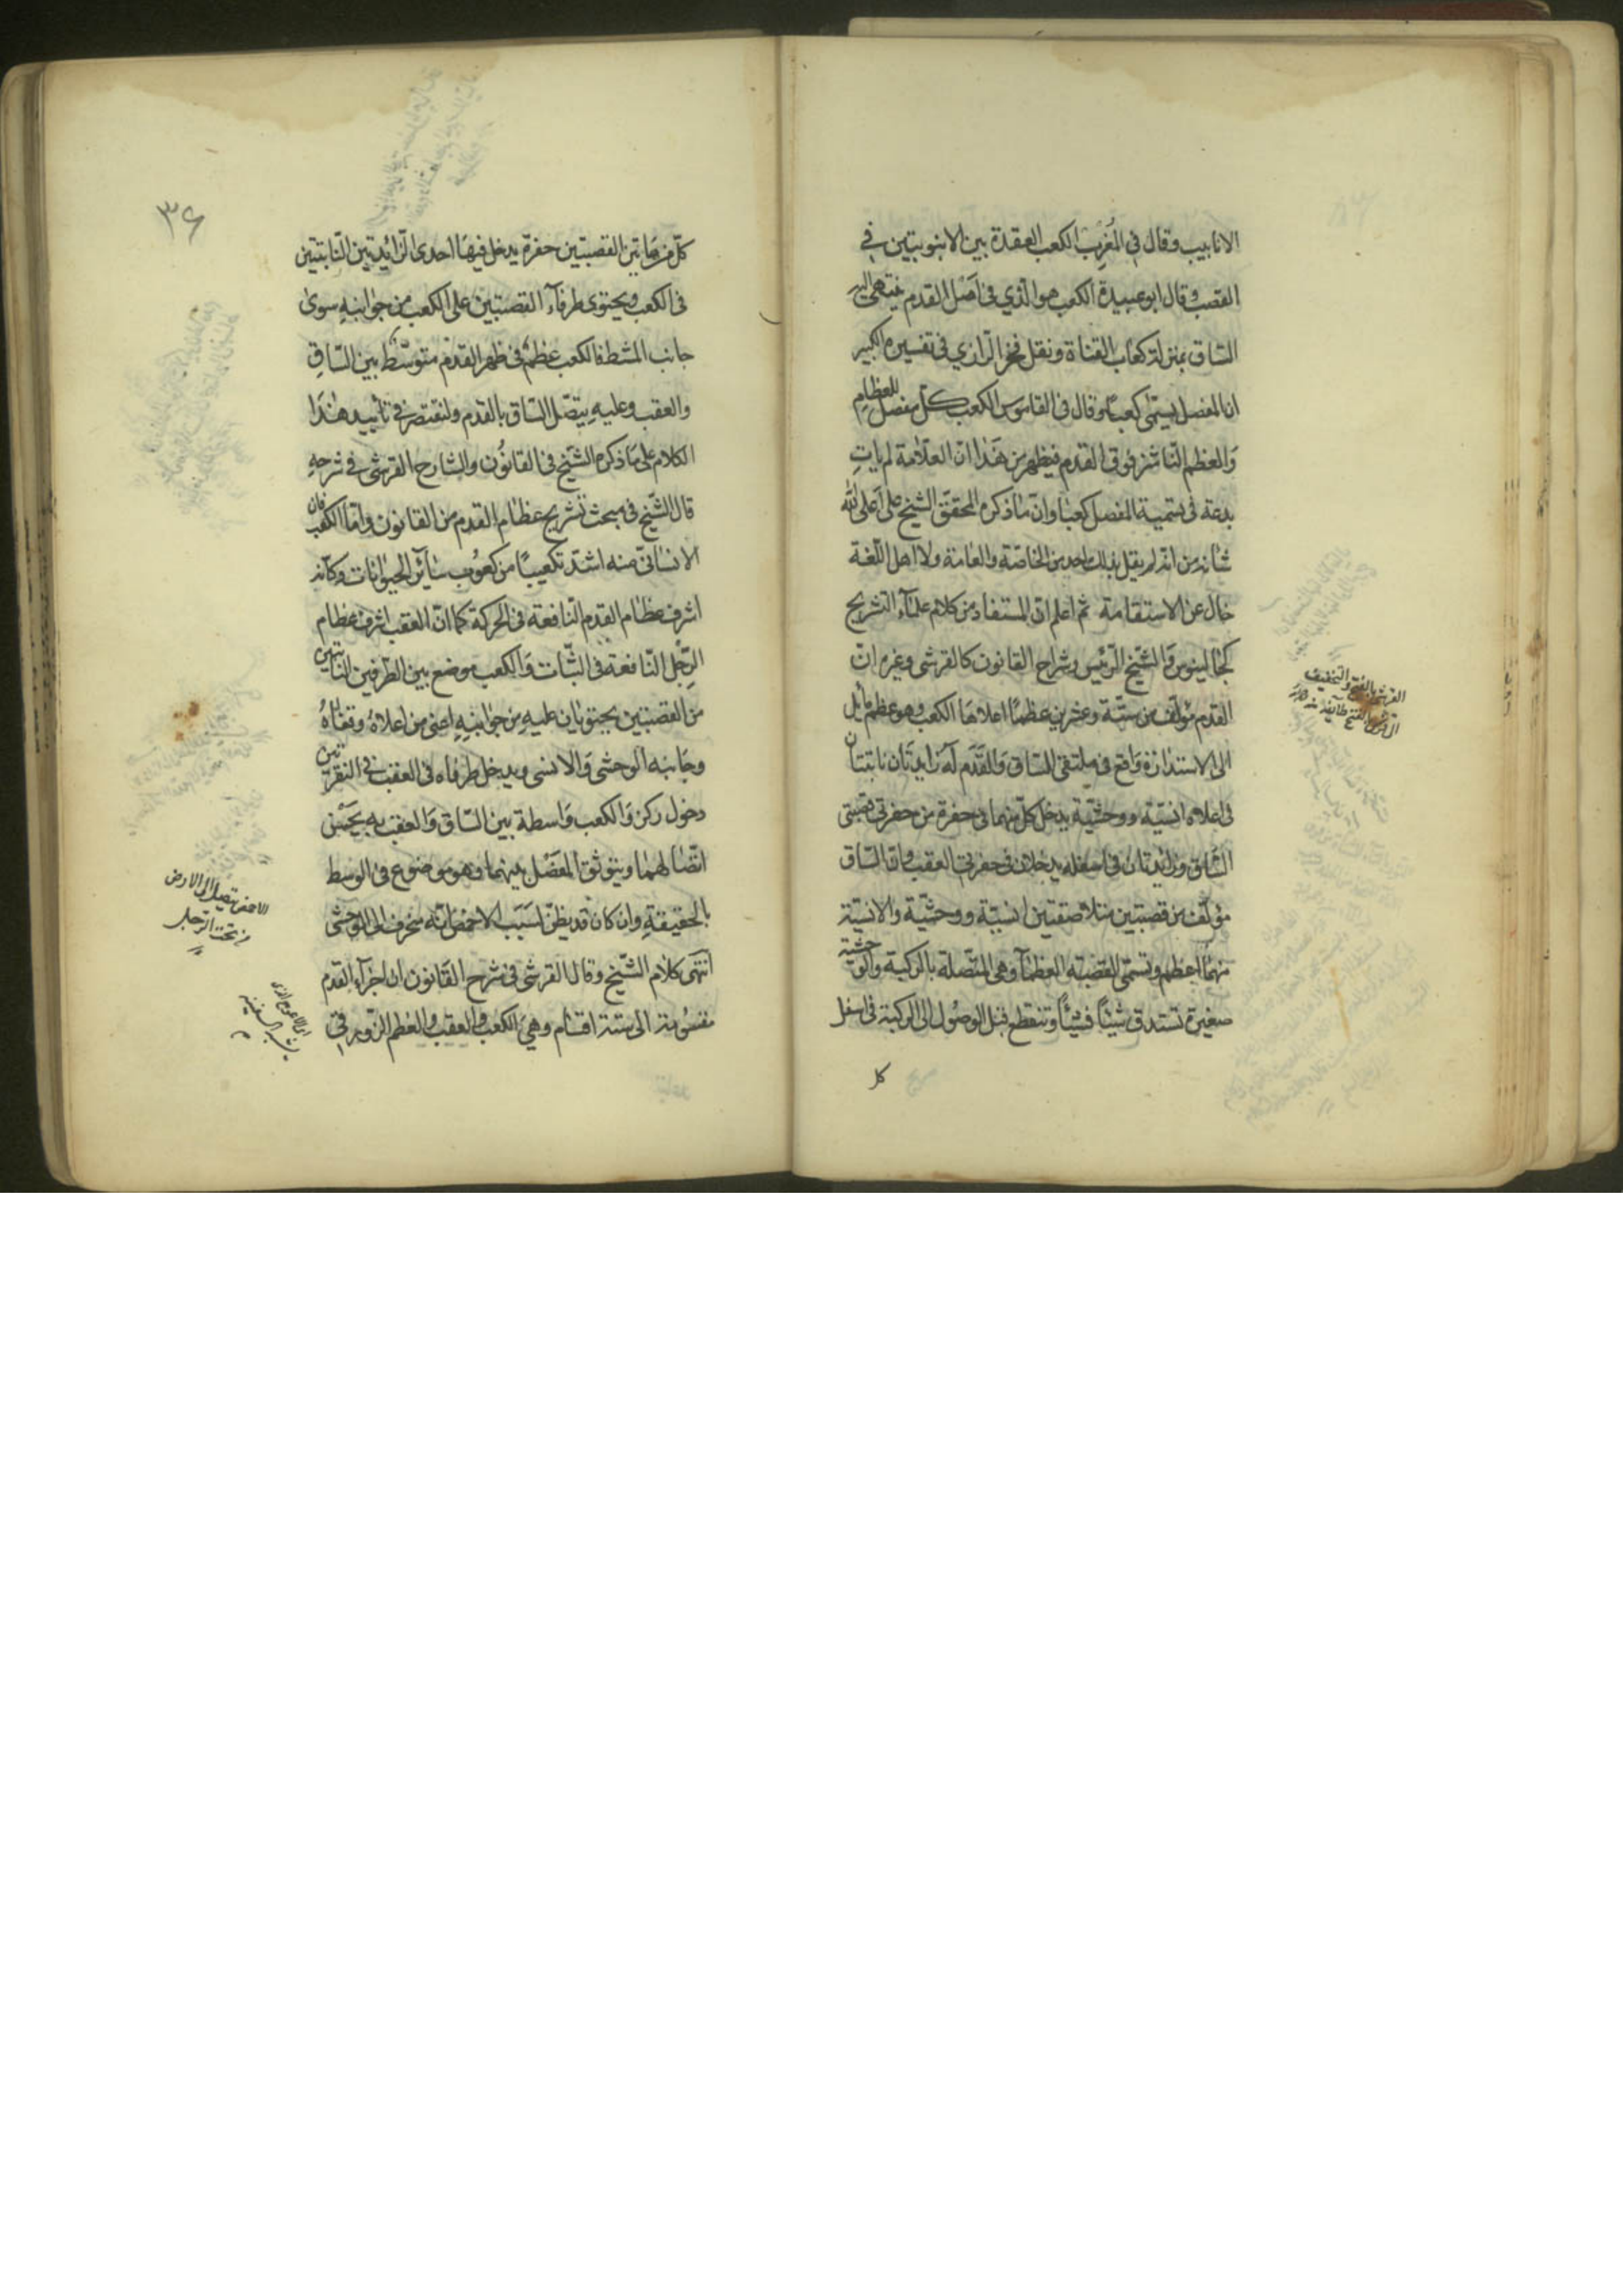 الانابيب وقال في المُغرِب الكعب العقدة بين الانبوبتين في
القصب وقال ابو عبيدة الكعب هو الذي في اصل القدم ينتهي اليه
الساق بمنزلة كعاب القناة ونقل فخر الرازي في تفسيره الكبير
ان المفصل يسمى كعبًا وقال في القاموس الكعب كل مفصل للعظام
والعظم الناشز فوق القدم فيظهر من هذا ان العلامة لم يات
بدعة في تسمية المفصل كعبا وان ما ذكره المحقق الشيخ علي اعلى الله
شانه من انه لم يقل بذلك احد من الخاصة والعامة ولا اهل اللغة
خال عن الاستقامة ثم اعلم ان المستفاد من كلام علماء التشريح
كجالينوس والشيخ الرئيس وشراح القانون كالقرشي وغيره انّ
القدم مؤلف من ستة وعشرين عظمًا اعلاها الكعب وهو عظم مائل
الى الاستدارة واقع في ملتقى الساق والقدم له زايدتان ناتئتان
في اعلاه انسية ووحشية يدخل كل منهما في حفرة من حفرتي قصبتي
الساق وزائدتان في اسفله يدخلان في حفرتي العقب واما الساق
مؤلف من قصبتين متلاصقتين انسية ووحشية والانسية
منهما اعظم وتسمى القصبة العظمى وهي المتصلة بالركبة والوحشية
صغيرة تستدق شيئًا فشيئًا وتنقطع قبل الوصول الى الركبة في اسفل
كل
القرشي بالفتح والتخفيف
٣٦
كل من هاتين القصبتين حفرة يدخل فيها احدى الزائدتين الناتئتين
في الكعب ويحتوى طرفاء القصبتين على الكعب من جوانبه سوى
جانب المشط فالكعب عظم في ظهر القدم متوسط بين الساق
والعقب وعليه يتصل الساق بالقدم ولنقتصر في تأييد هذا
الكلام على ما ذكره الشيخ في القانون والشارح القرشي في شرحه
قال الشيخ في مبحث تشريح عظام القدم من القانون واما الكعب فان
الانساني منه اشد تكعيبًا من كعوب سائر الحيوانات وكانه
اشرف عظام القدم النافعة في الحركة كما ان العقب اشرف عظام
الرجل النافعة في الثبات والكعب موضع بين الطرفين الناتيين
من القصبتين يحتويان عليه من جوانبه اعني من اعلاه وقفاه
وجانبه الوحشي والانسي ويدخل طرفاه في العقب في النقرتين
دخول ركن والكعب واسطة بين الساق والعقب به يحسن
اتصالهما ويتوثق المفصل بينهما وهو موضوع في الوسط
بالحقيقة وان كان قد يظن لسبب الاخمص انه منحرف الى الوحشي
انتهى كلام الشيخ وقال القرشي في شرح القانون ان اجزاء القدم
مقسومة الى ستة اقسام وهي الكعب والعقب والعظم الزورقي
الاخمص يتصل الى الارض
من تحت الرجل